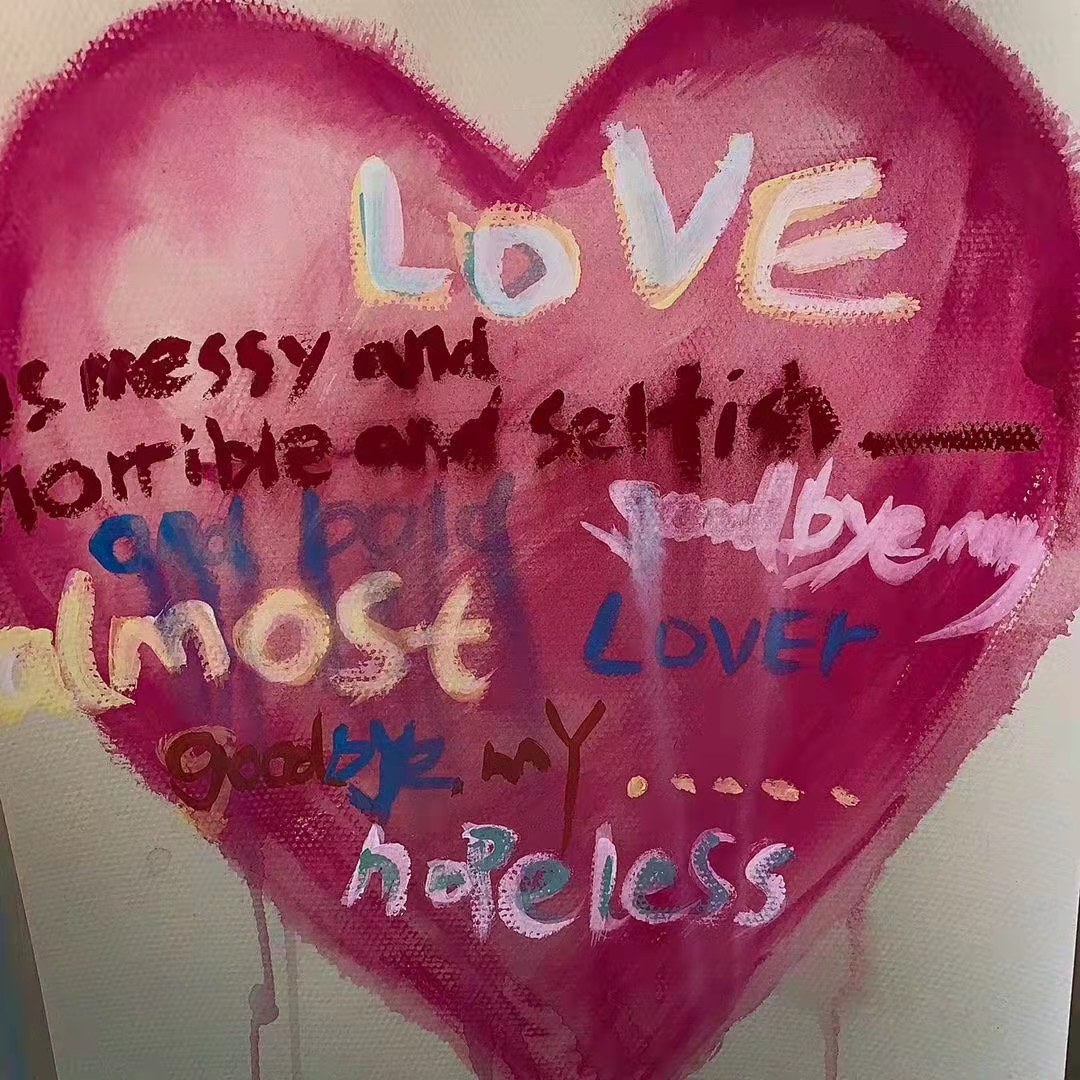 LOVE
is messy and
horrible and selfish —
and bold goodbye my
almost LOVEr
goodbye, my .....
hopeless